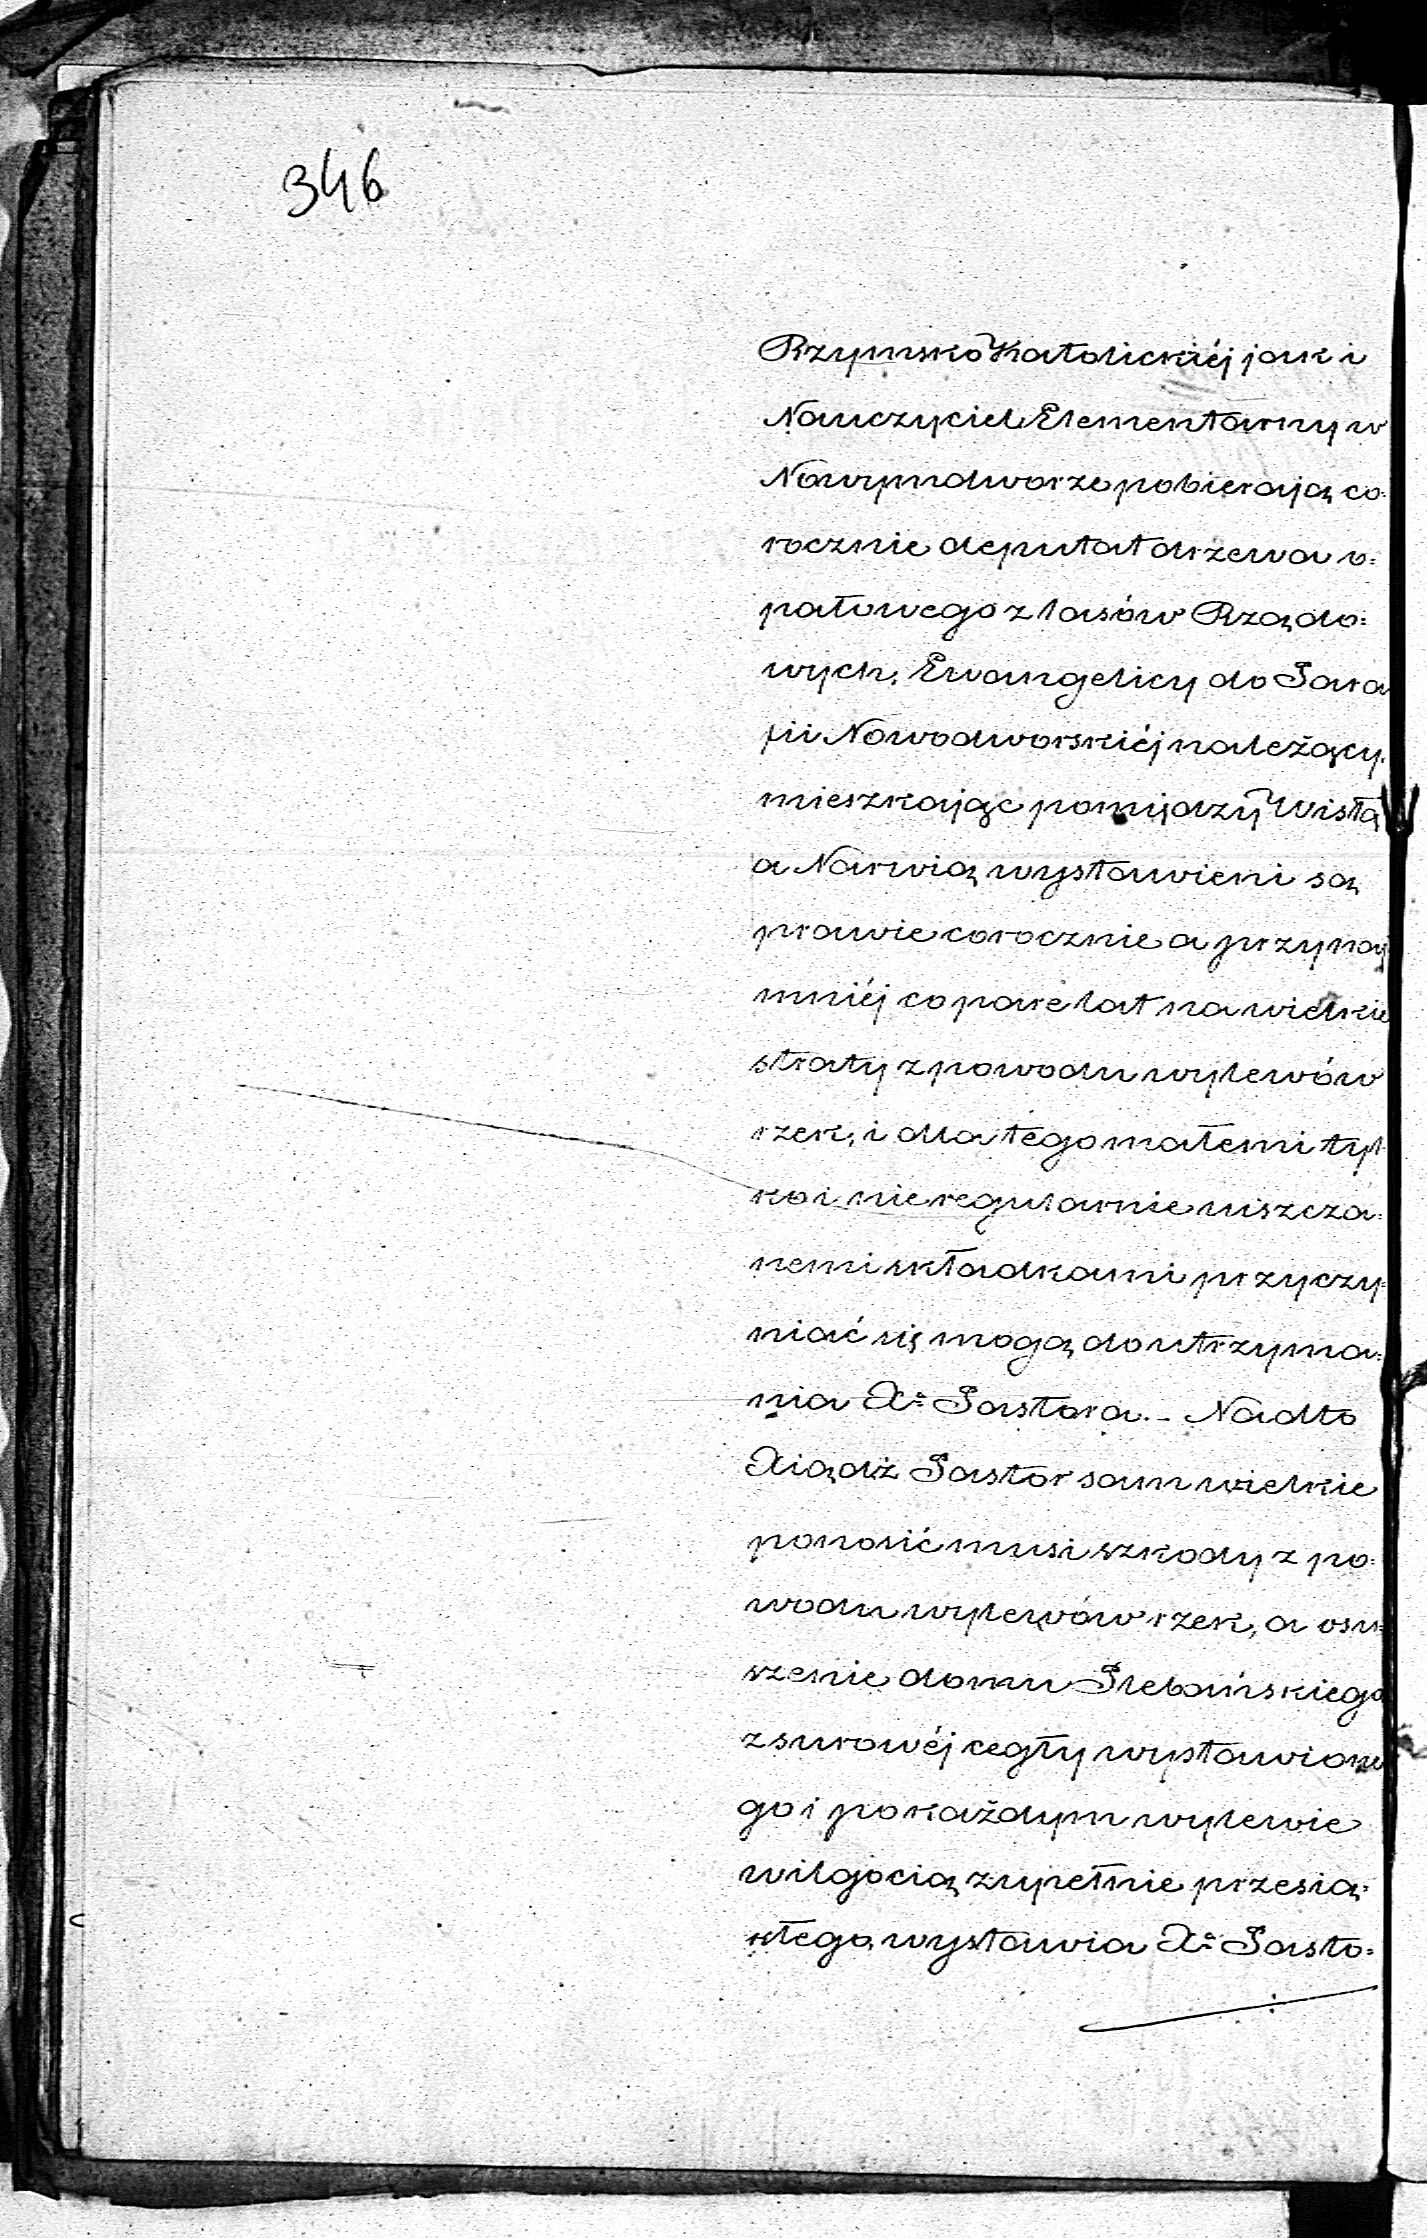 346
Rzymsko Katolickiéj jak i
Nauczyciel Elementarny w
Nowymdworze pobierają co-
rocznie deputat drzewa o=
pałowego z lasów Rządo=
wych. Ewangelicy do Para
fii Nowodworskiéj należący,
mieszkając pomiędzy Wisłą
a Narwią wystawieni są
prawie corocznie a przynaj
mniéj co pare lat na wielkie
straty z powodu wylewów
rzek, i dla tego małemi tyl
ko i nieregularnie uiszcza=
nemi składkami przyczy-
niać się mogą do utrzyma=
nia Xa Pastora. – Nadto
Xiądż Pastor sam wielkie
ponosić musi szkody z po=
wodu wylewów rzek, a osu=
szenie domu Plebańskiego
z surowéj cegły wystawione
go i po każdym wylewie
wilgocią zupełnie przesią=
kłego, wystawia Xa Pasto=